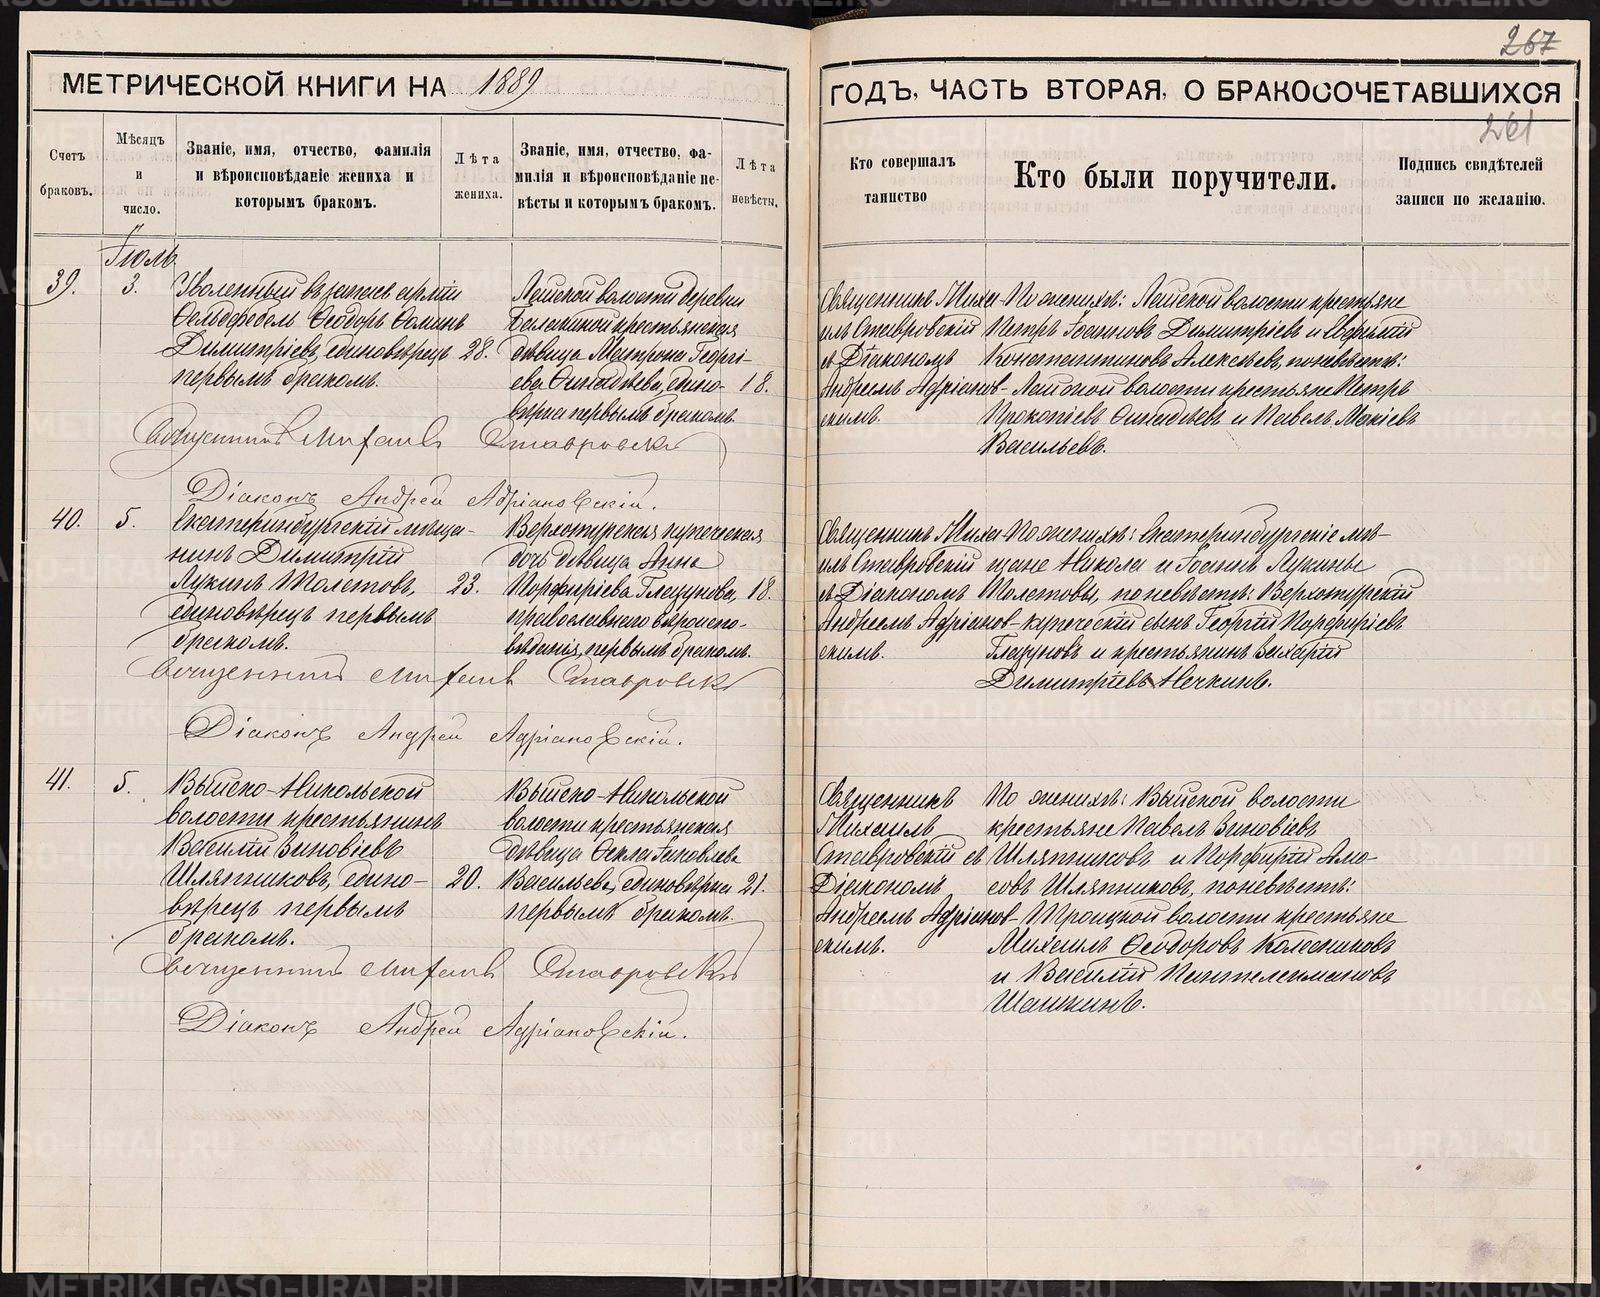 267
МЕТРИЧЕСКОЙ КНИГИ НА 1889
ГОДЪ, ЧАСТЬ ВТОРАЯ, О БРАКОСОЧЕТАВШИХСЯ
261
Счетъ
браковъ.
Мѣсяцъ
и
число.
Званіе, имя, отчество, фамилія
и вѣроисповѣданіе жениха и
которымъ бракомъ.
Лѣта
жениха.
Званіе, имя, отчество, фа-
милія и вѣроисповѣданіе не-
вѣсты и которымъ бракомъ.
Лѣта
невѣсты.
Кто совершалъ
таинство
Кто были поручители.
Подпись свидѣтелей
записи по желанію.
Іюль.
39.
3.
Уволенный въ запасъ арміи
Фельдфебель Ѳеодоръ Ѳоминъ
Димитріевъ, единовѣрецъ
первымъ бракомъ.
28.
Лайской волости деревни
крестьянская
дѣвица Матрона Георгі-
ева едино-
вѣрка первымъ бракомъ.
18.
Священникъ Миха-
илъ Ставровскій
съ Діакономъ
Андреемъ Адріанов-
скимъ.
По женихѣ: Лайской волости крестьяне
Петръ Іоанновъ Димитріевъ и Евфимій
Константиновъ Алексѣевъ, по невѣстѣ:
Лайской волости крестьяне Петръ
Прокопіевъ и Павелъ Мокіевъ
Васильевъ.
Священникъ Михаилъ Ставровскій
Діаконъ Андрей Адріановскій.
40.
5.
Екатеринбургскій мѣща-
нинъ Димитрій
Лукинъ Толстовъ,
единовѣрецъ первымъ
бракомъ.
23.
Верхотурская купеческая
дочь дѣвица Анна
Порфиріева Глазунова,
православнаго вѣроиспо-
вѣданія, первымъ бракомъ.
18.
Священникъ Миха-
илъ Ставровскій
съ Діакономъ
Андреемъ Адріанов-
скимъ.
По женихѣ: Екатеринбургскіе мѣ-
щане Никола и Іоаннъ Лукины
Толстовы, по невѣстѣ: Верхотурскій
купеческій сынъ Георгій Порфиріевъ
Глазуновъ и крестьянинъ Захарій
Димитріевъ Нечкинъ.
Священникъ Михаилъ Ставровскій
Діаконъ Андрей Адріановскій.
41.
5.
Выйско-Никольской
волости крестьянинъ
Василій Зиновіевъ
Шляпниковъ, едино-
вѣрецъ первымъ
бракомъ.
20.
Выйско-Никольской
волости крестьянская
дѣвица Ѳекла Іаковлева
Васильева, единовѣрка
первымъ бракомъ.
21.
Священникъ
Михаилъ
Ставровскій съ
Діакономъ
Андреемъ Адріанов-
скимъ.
По женихѣ: Выйской волости
крестьяне Павелъ Зиновіевъ
Шляпниковъ и Порфирій Амо-
совъ Шляпниковъ, по невѣстѣ:
Троицкой волости крестьяне
Михаилъ Ѳеодоровъ Колесниковъ
и Василій Пантелеимоновъ
Шашкинъ.
Священникъ Михаилъ Ставровскій
Діаконъ Андрей Адріановскій.
METRIKI.GASO-URAL.RU